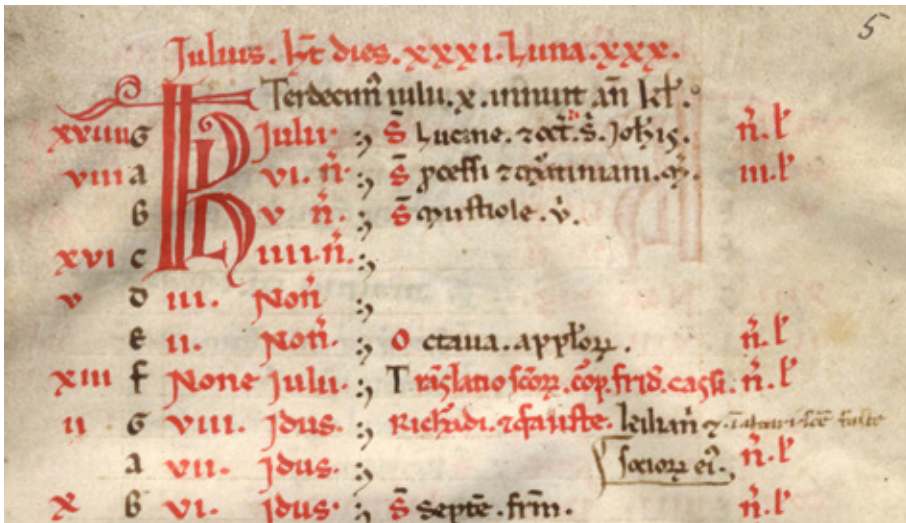 5
Julius. ht dies. xxxi. Luna. xxx.
Terdecim̄ iulii. x. innuit an̄ kl̄.
xviiii G KL Julii. S̄ Lucine. ⁊ oct̄. s̄. Joh̄is. n̄. l̄
viii a vi. n̄. S̄ ꝓcessi ⁊ martiniani. m̄. iii. l̄
b v n̄. S̄ mustiole. v̄.
xvi c iiii. n̄.
v d iii. Non̄
e ii. Non̄. Octaua. apploꝝ. n̄. l̄
xiii f None Julii. Translatio scōꝝ. cōp. frid̄. cassi. n̄. l̄
ii G viii. Idus. Richardi. ⁊ fauste. kilian̄ ⁊
a vii. Idus. socioꝝ ei᷒. n̄. l̄
x b vi. Idus. S̄ septē. frm̄. n̄. l̄